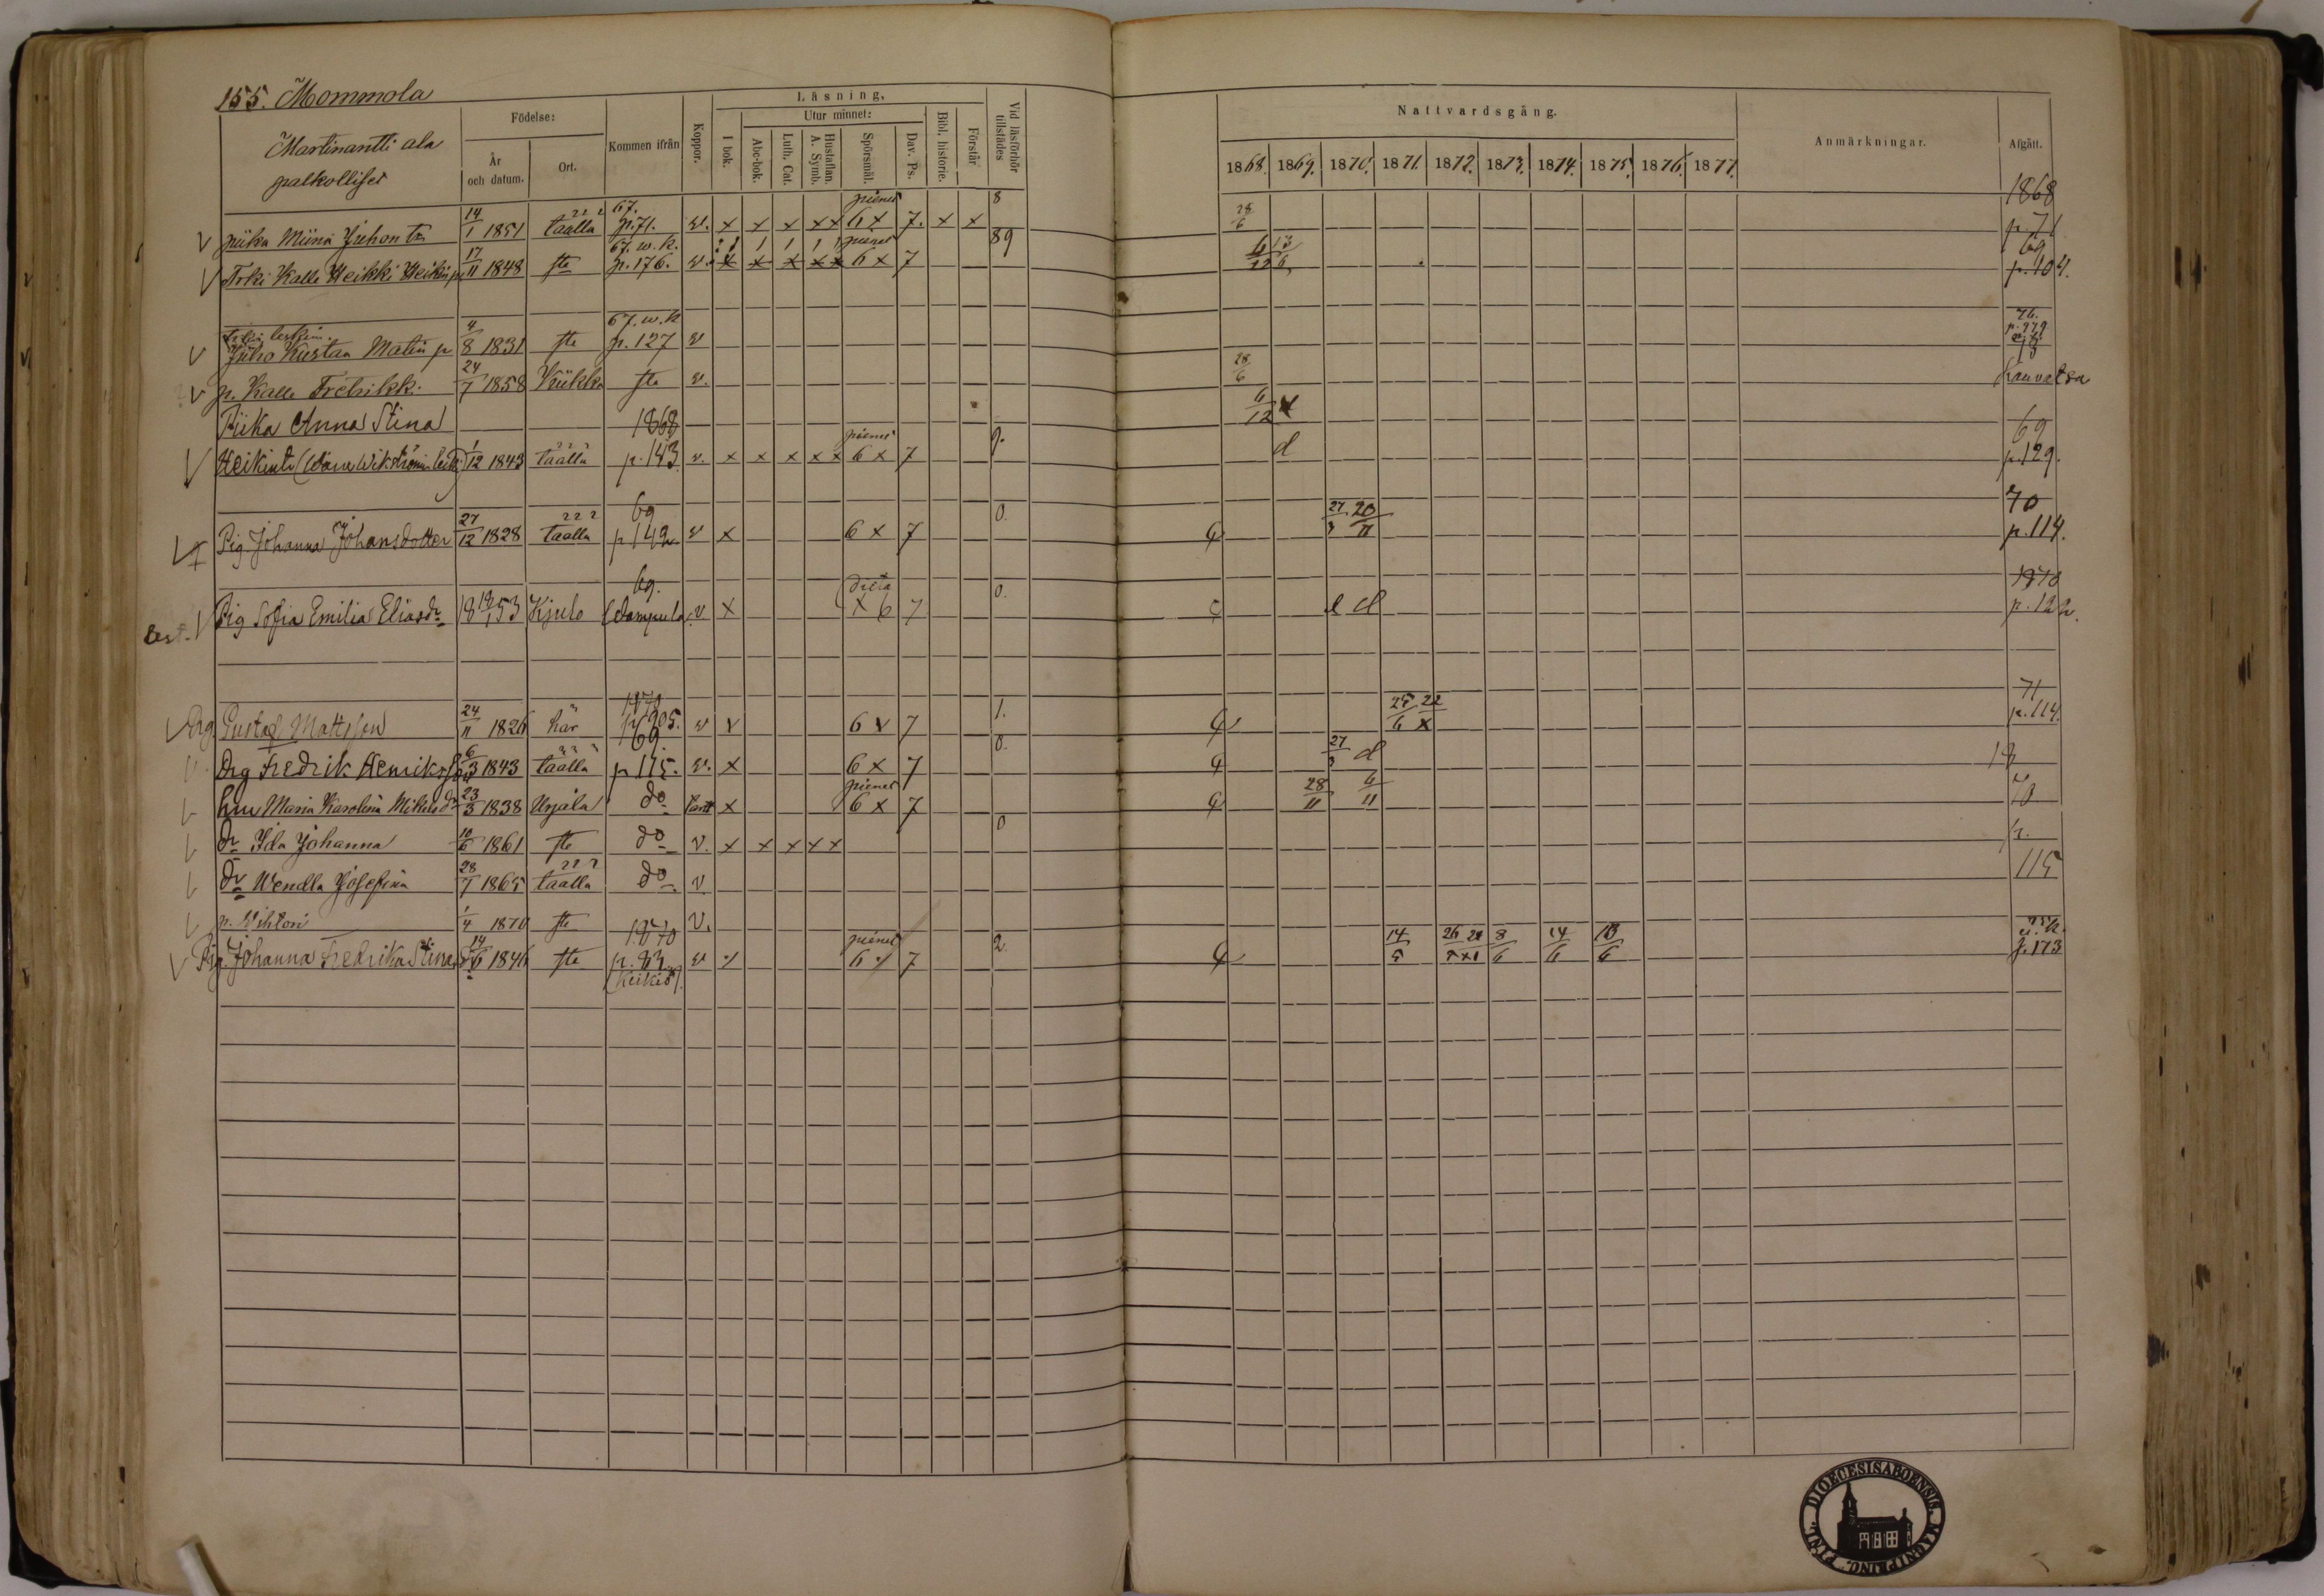 155. Mommola
Martinantti ala
palkolliset
Födelse:
År
och datum.
Ort.
Kommen ifrån
Koppor.
Läsning.
Utur minnet:
I bok.
Abc-bok.
Luth. Cat.
Hustaflan.
A. Symb.
Spörsmål.
Dav. Ps.
Bibl. historie.
Förstår
Vid läsförhör
tillstädes
Nattvardsgång.
1868. 1869. 1870. 1871. 1872. 1873. 1874. 1875. 1876. 1877.
Anmärkningar.
Afgått.
piika Miina Juhon tr 14/1 1851 täällä 67. p. 71. v. x x x x x pienet 6 x 7. x x 8 28/6 1868 p. 71
Trki Kalle Heikki Heikin p 17/11 1848 ste 67. w. k. p. 176. v. x x x x x pienet 6 x 7 89 6/12 13/6 69 p. 104.
Juho Kustaa Matin p 4/8 1831 ste 67. w. k p. 127 v
p. Kalle Fredrikki 24/7 1858 Kiikka ste v. 28/6 Kauvatsa
Piika Anna Stina 1868 6/12
Heikintr 1/12 1843 täällä p. 143. v. x x x x x pienet 6 x 7 9. d 69 p. 129.
Pig. Johanna Johansdotter 27/12 1828 täällä 69 p 142 v x 6 x 7 0. 27/3 20/11 70 p. 114.
Pig Sofia Emilia Eliasdr 1853 Kjulo 69. Wampula v x x 6 7 0. d 1870 p. 122.
Drg Gustaf Mattsson 24/11 1826 här 1870 p. 205. v v 6 v 7 1. 25/6 22/x 71 p. 114.
Drg Fredrik Henriksson 6/3 1843 täällä 69. p 115. v. x 6 x 7 0. 27/3 d 18
hu Maria Karolina Mikaelsdr 23/3 1838 Urjala do x pienet 6 x 7 28/11 6/11 70
dr Ida Johanna 10/6 1861 ste do v. x x x x x 0 p.
dr Wendla Josefina 28/7 1865 täällä do v. 115
p. Wihtori 1/4 1870 ste v.
Pig. Johanna Fredrika Stina 14/6 1846 ste 1870 p. 83. (Keikiö). v pienet 6 7 2. 14/5 26 3/6 14/6 13/6 p. 173
FINL. DIOECESIS ABOENSIS. MAGNI PRINC.